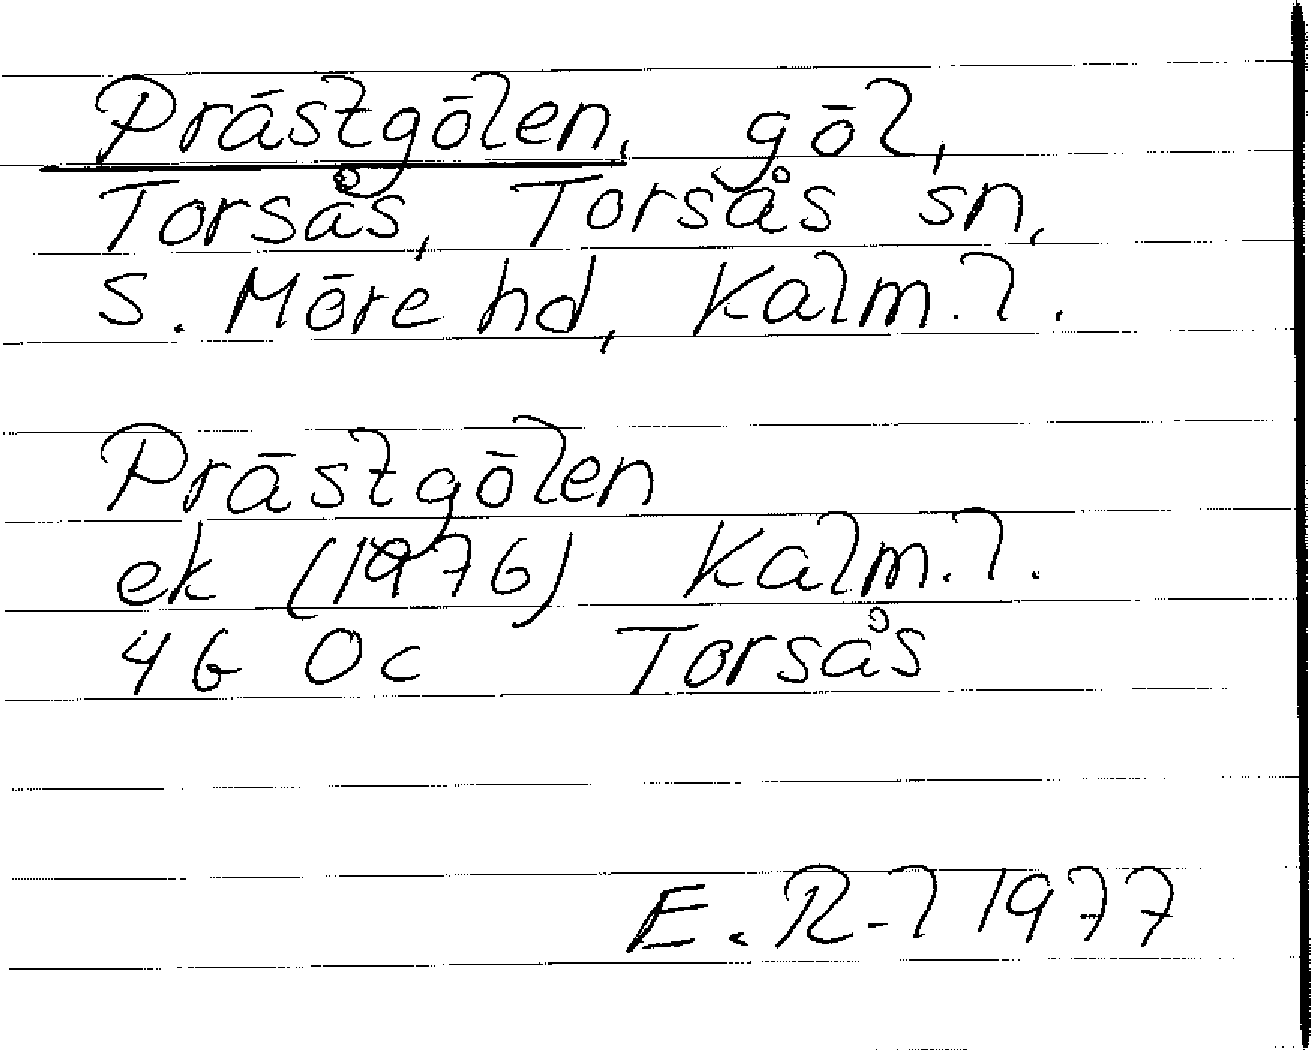 Prästgölen, göl,
Torsås, Torsås sn,
S. Möre hd, Kalm. l.
Prästgölen
ek (1976) Kalm. l.
4G Oc Torsås
E. R-l 1977